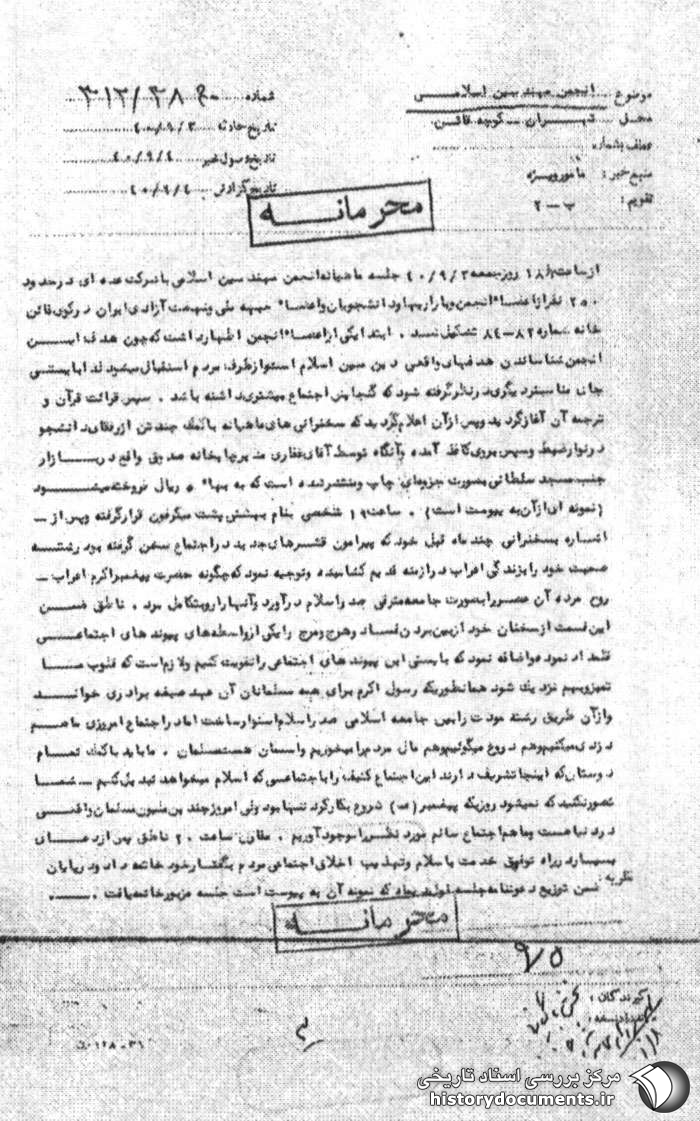 موضوع : انجمن مهندسین اسلامی
محل : تهران - کوچه قائن
عطف بشماره
منبع خبر : مامور ویژه
تقویم : ب-۲
شماره ۳۱۲/۳۸
تاریخ حادثه ۴۰/۹/۳
تاریخ وصول خبر ۴۰/۹/۴
تاریخ گزارش ۴۰/۹/۴
محرمانه
از ساعت ۱۸ روز جمعه ۴۰/۹/۳ جلسه ماهیانه انجمن مهندسین اسلامی با شرکت عده ای در حدود
۲۵۰ نفر از اعضاء انجمن و بازاریها و دانشجویان و اعضاء جبهه ملی و نهضت آزادی ایران در کوی قائن
خانه شماره ۸۲-۸۴ تشکیل شد . ابتدا یکی از اعضاء انجمن اظهار داشت که چون هدف ایــن
انجمن شناساندن هدفهای واقعی دین مبین اسلام است و از طرف مردم استقبال میشود لذا بایستــی
جای مناسبتر دیگری در نظر گرفته شود که گنجایش اجتماع بیشتری داشته باشد . سپس قرائت قرآن و
ترجمه آن آغاز گردید و پس از آن اعلام گردید که سخنرانی های ماهیانه با کمک چند تن از رفقای دانشجو
در نوار ضبط و سپس بروی کاغذ آمده و آنگاه توسط آقای غفاری مدیر چاپخانه صدوق واقع در بــازار
جنب مسجد سلطانی بصورت جزوه ای چاپ و منتشر شده است که به بهاء ۵ ریال فروخته میشــود
(نمونه ای از آن به پیوست است) . ساعت ۱۹ شخصی بنام بهشتی پشت میکرفون قرار گرفته و پس از -
اشاره بسخنرانی چند ماه قبل خود که پیرامون قشرهای جدید در اجتماع سخن گرفته بود رشتــه
صحبت خود را بزندگی اعراب در ازمنه قدیم کشانیده و توجیه نمود که چگونه حضرت پیغمبر اکرم اعراب -
روح مرده آن عصر را بصورت جامعه مترقی صدر اسلام درآورد و آنها را رو بتکامل برد . ناطق ضمــن
این قسمت از سخنان خود از بین بردن فساد و هرج و مرج را یکی از واسطه های پیوند های اجتماعــی
قلمداد نمود و اضافه نمود که بایستی این پیوند های اجتماعی را تقویت کنیم و لازم است که قلوب مــا
نیز بهم نزدیک شود همانطوریکه رسول اکرم برای همه مسلمانان آن عهد صیغه برادری خوانــد
و از آن طریق رشته مودت را بین جامعه اسلامی صدر اسلام استوار ساخت اما در اجتماع امروزی ما هــم
دزدی میکنیم و هم دروغ میگوئیم و هم مال مردم را میخوریم و اسمان هست مسلمان . ما باید با کمک تمــام
دوستانی که اینجا تشریف دارند این اجتماع کثیف را با اجتماعی که اسلام میخواهد تبدیل کنیم - شمــا
تصور نکنید که نمیشود روزیکه پیغمبر (ص) شروع بکار کرد تنها بود ولی امروز چندین ملیون مسلمان واقعــی
در دنیا هست و ما هم اجتماع سالم مورد نظر را بوجود آوریم . مقارن ساعت ۲۰ ناطق پس از دعــای
بسیار در راه توفیق خدمت باسلام و تهذیب اخلاق اجتماعی مردم بگفتار خود خاتمه داد و در پایان
ضمن توزیع دعوتنامه جلسه که نمونه آن به پیوست است جلسه مزبور خاتمه یافت .
نظریه :
محرمانه
۹۷۵
گیرندگان :
۳۱-۱۲۸
مرکز بررسی اسناد تاریخی
historydocuments.ir